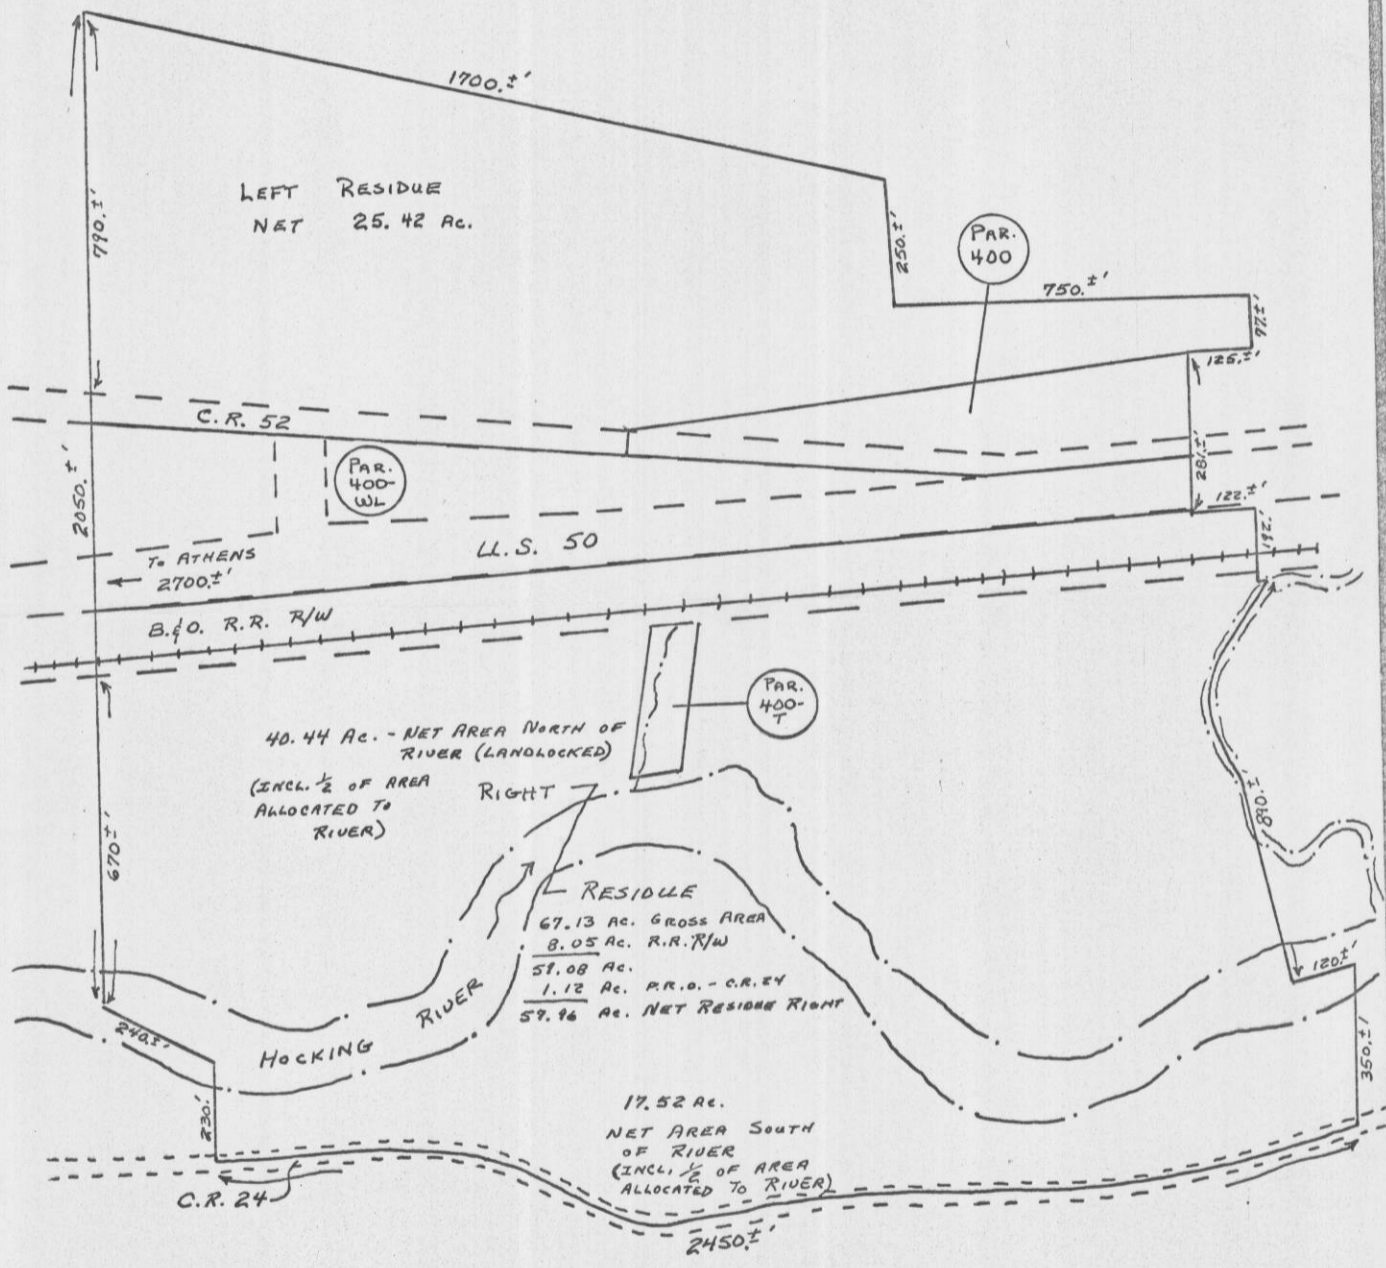 1700.±'
LEFT RESIDUE
NET 25.42 Ac.
790.±'
250.±'
PAR.
400
750.±'
97.±'
125.±'
C.R. 52
PAR.
400-
WL
281.±'
122.±'
192.'
2050.±'
U.S. 50
TO ATHENS
2700.±'
B.&O. R.R. R/W
PAR.
400-
T
40.44 Ac. - NET AREA NORTH OF
RIVER (LANDLOCKED)
(INCL. 1/2 OF AREA
ALLOCATED TO
RIVER)
RIGHT
890.±'
670±'
RESIDUE
67.13 Ac. GROSS AREA
8.05 Ac. R.R. R/W
59.08 Ac.
1.12 Ac. P.R.O. - C.R. 24
57.96 Ac. NET RESIDUE RIGHT
120±'
240.±'
HOCKING RIVER
350.±'
230.'
17.52 Ac.
NET AREA SOUTH
OF RIVER
(INCL. 1/2 OF AREA
ALLOCATED TO RIVER)
C.R. 24
2450.±'